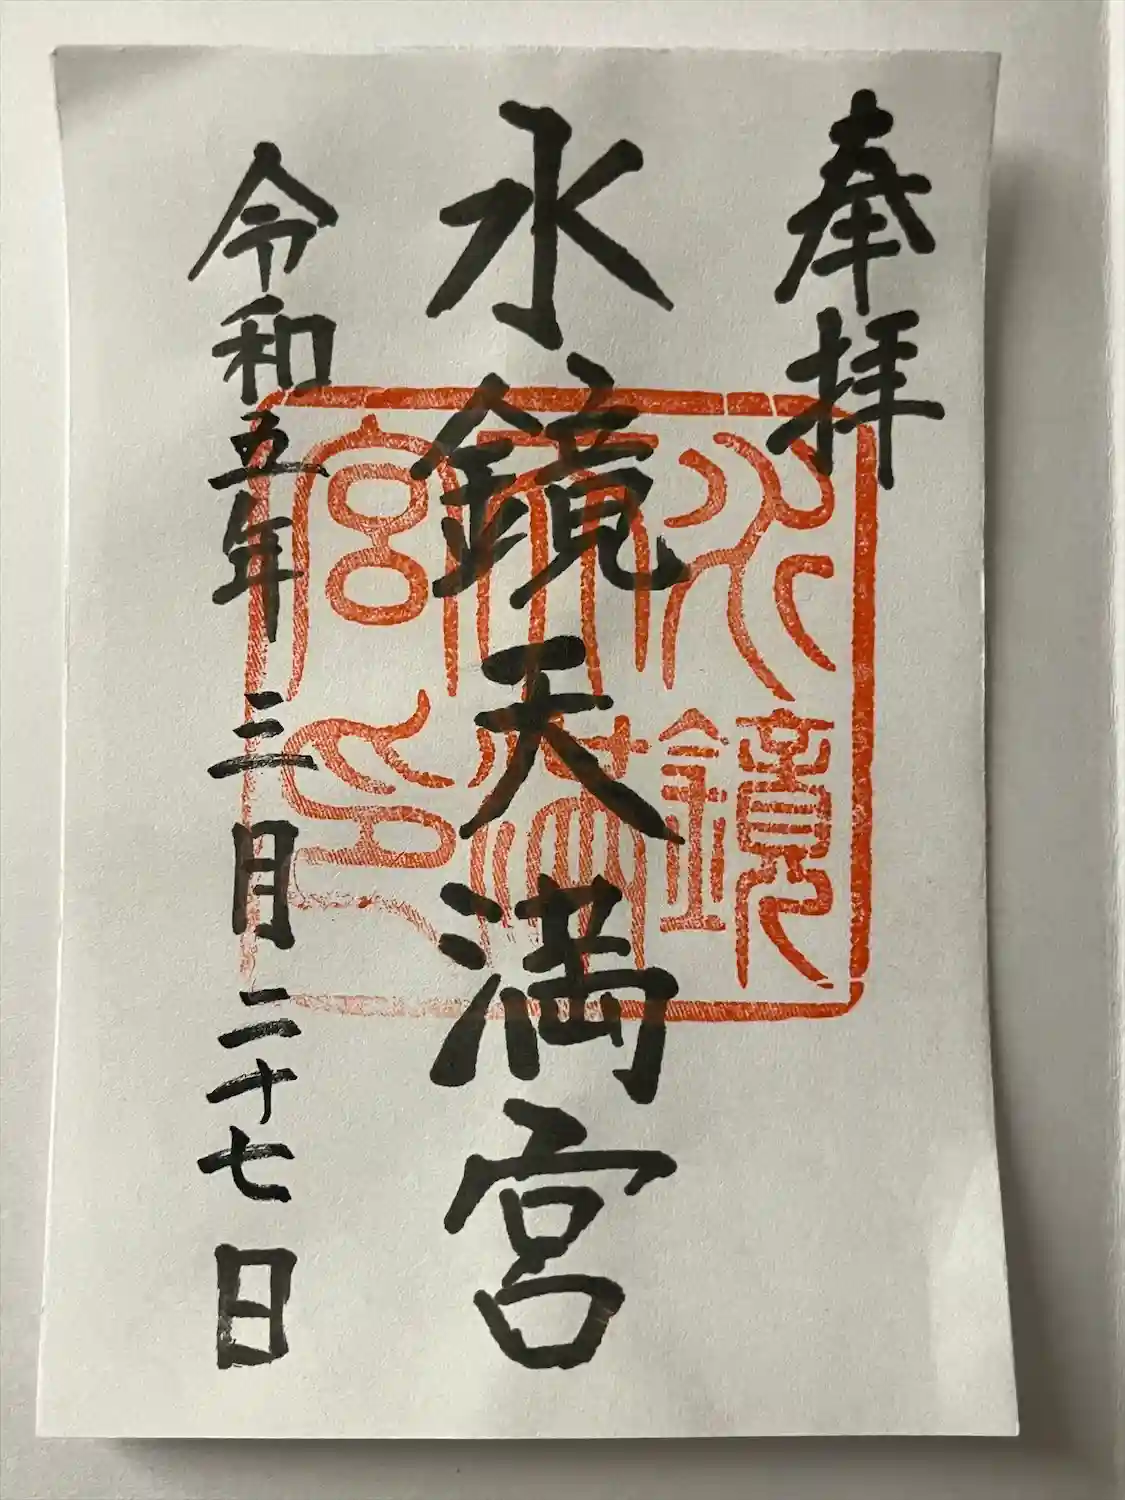 奉拝
水鏡天満宮
令和五年三月二十七日
水鏡
天満
宮印